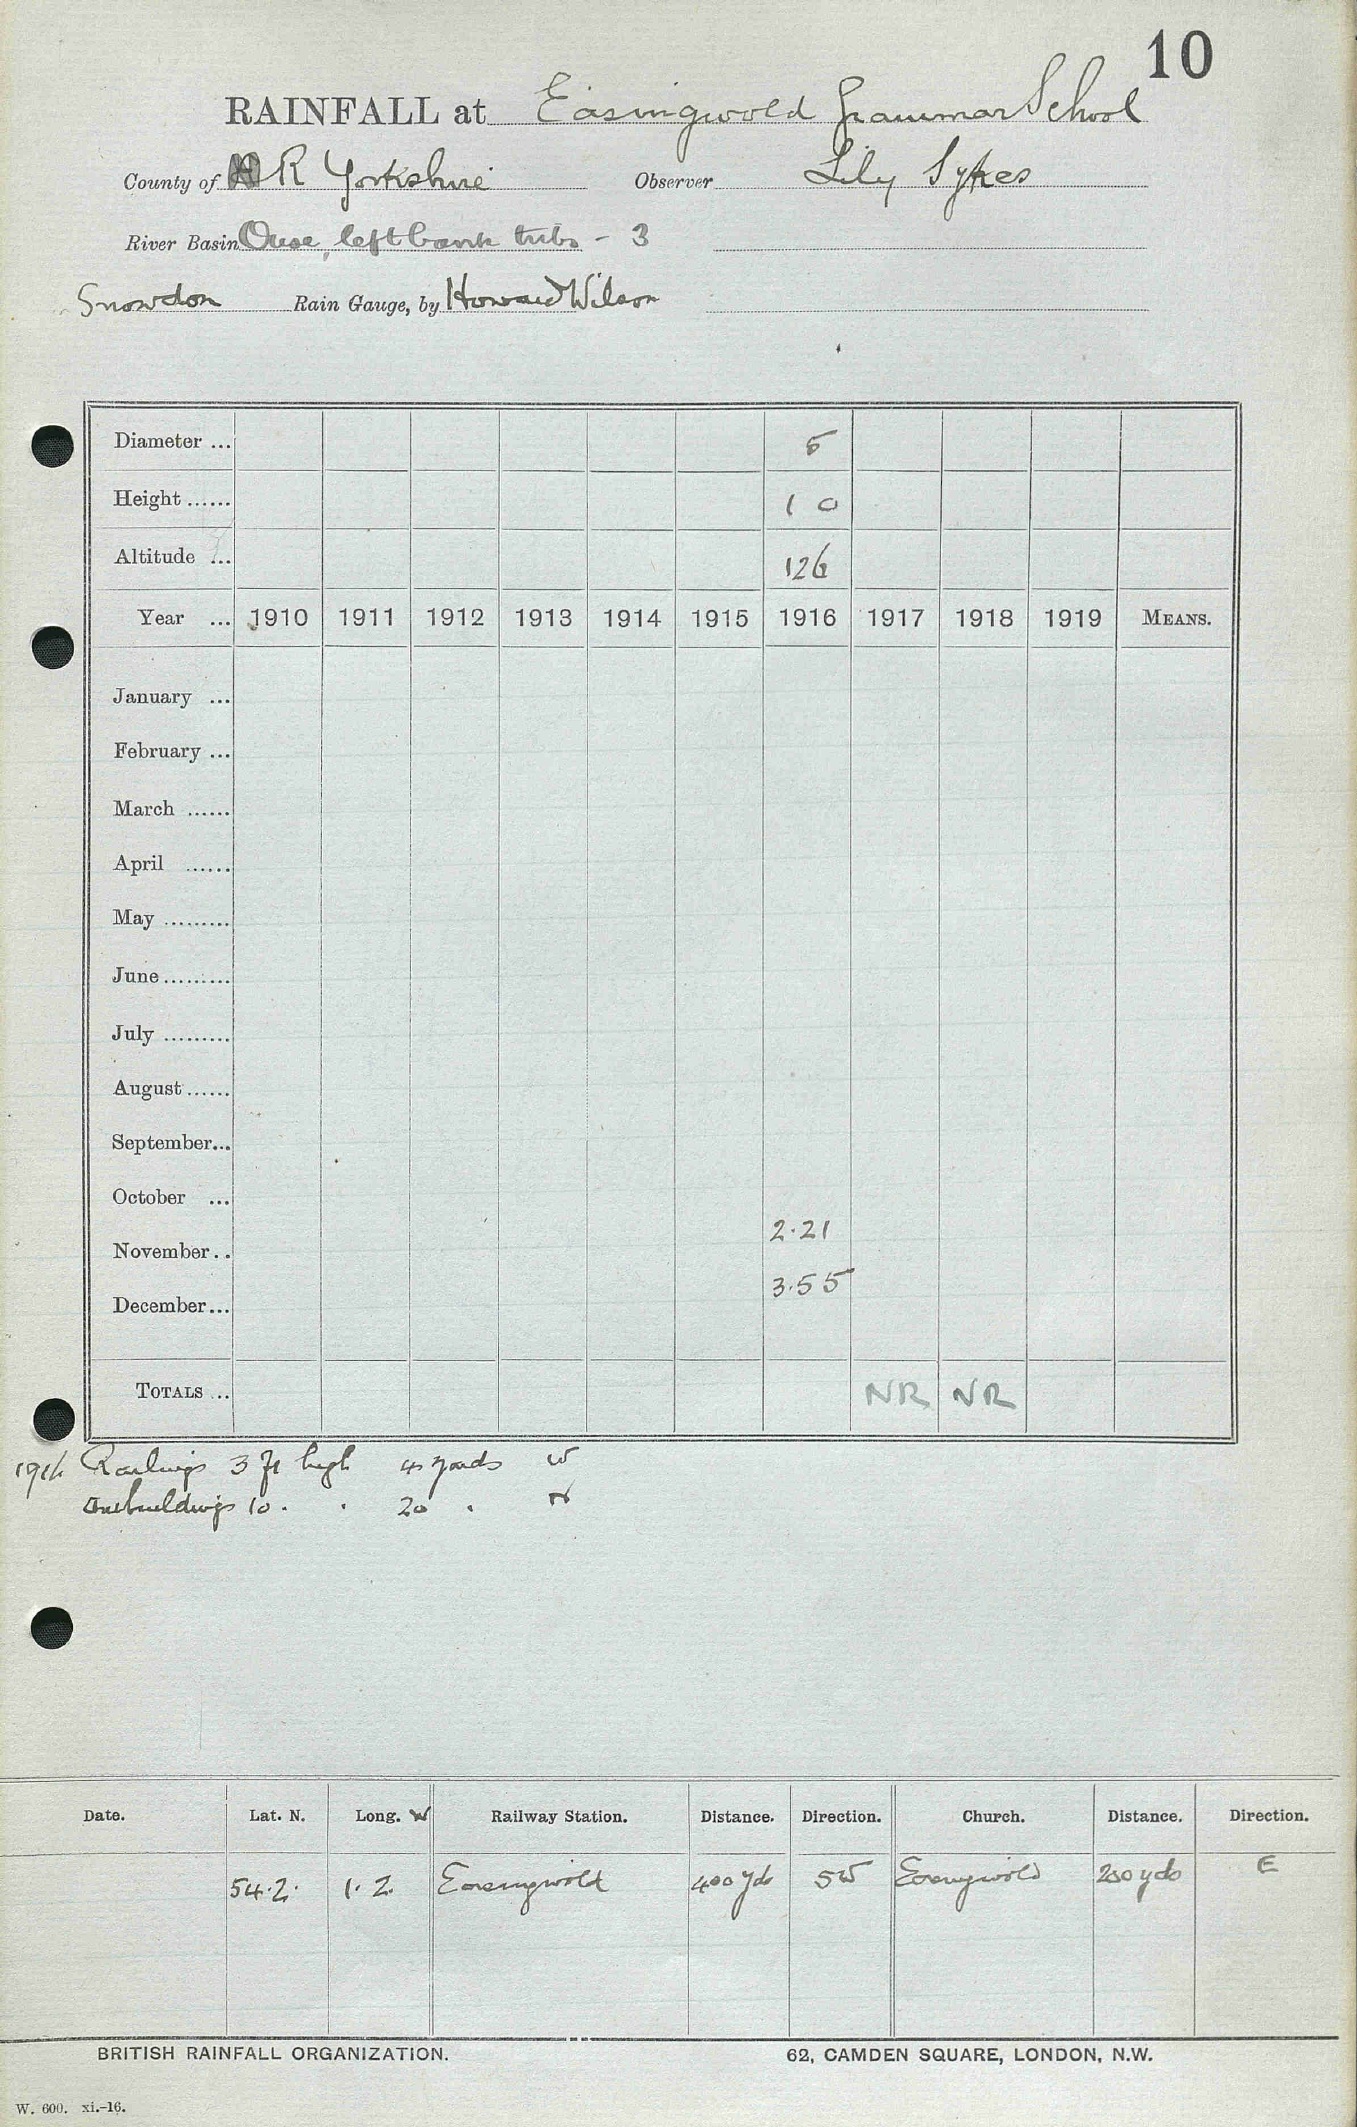 10
RAINFALL at Easingwold Grammar School
County of R Yorkshire Observer Lily Sykes
River Basin Ouse, left bank tribs - 3
Snowdon Rain Gauge, by Howard Wilson
Diameter ... 5
Height ...... 1 0
Altitude ... 126
Year ... 1910 1911 1912 1913 1914 1915 1916 1917 1918 1919 MEANS.
January ...
February ...
March ......
April ......
May .........
June .........
July .........
August ......
September...
October ...
November.. 2.21
December... 3.55
TOTALS ... NR NR
1916 Railings 3 ft high 4 yards W
Outbuildings 10 . . 20 . N
Date. Lat. N. Long. W Railway Station. Distance. Direction. Church. Distance. Direction.
54.2. 1.2. Easingwold 400 yds SW Easingwold 200 yds E
BRITISH RAINFALL ORGANIZATION. 62, CAMDEN SQUARE, LONDON, N.W.
W. 600. xi.-16.